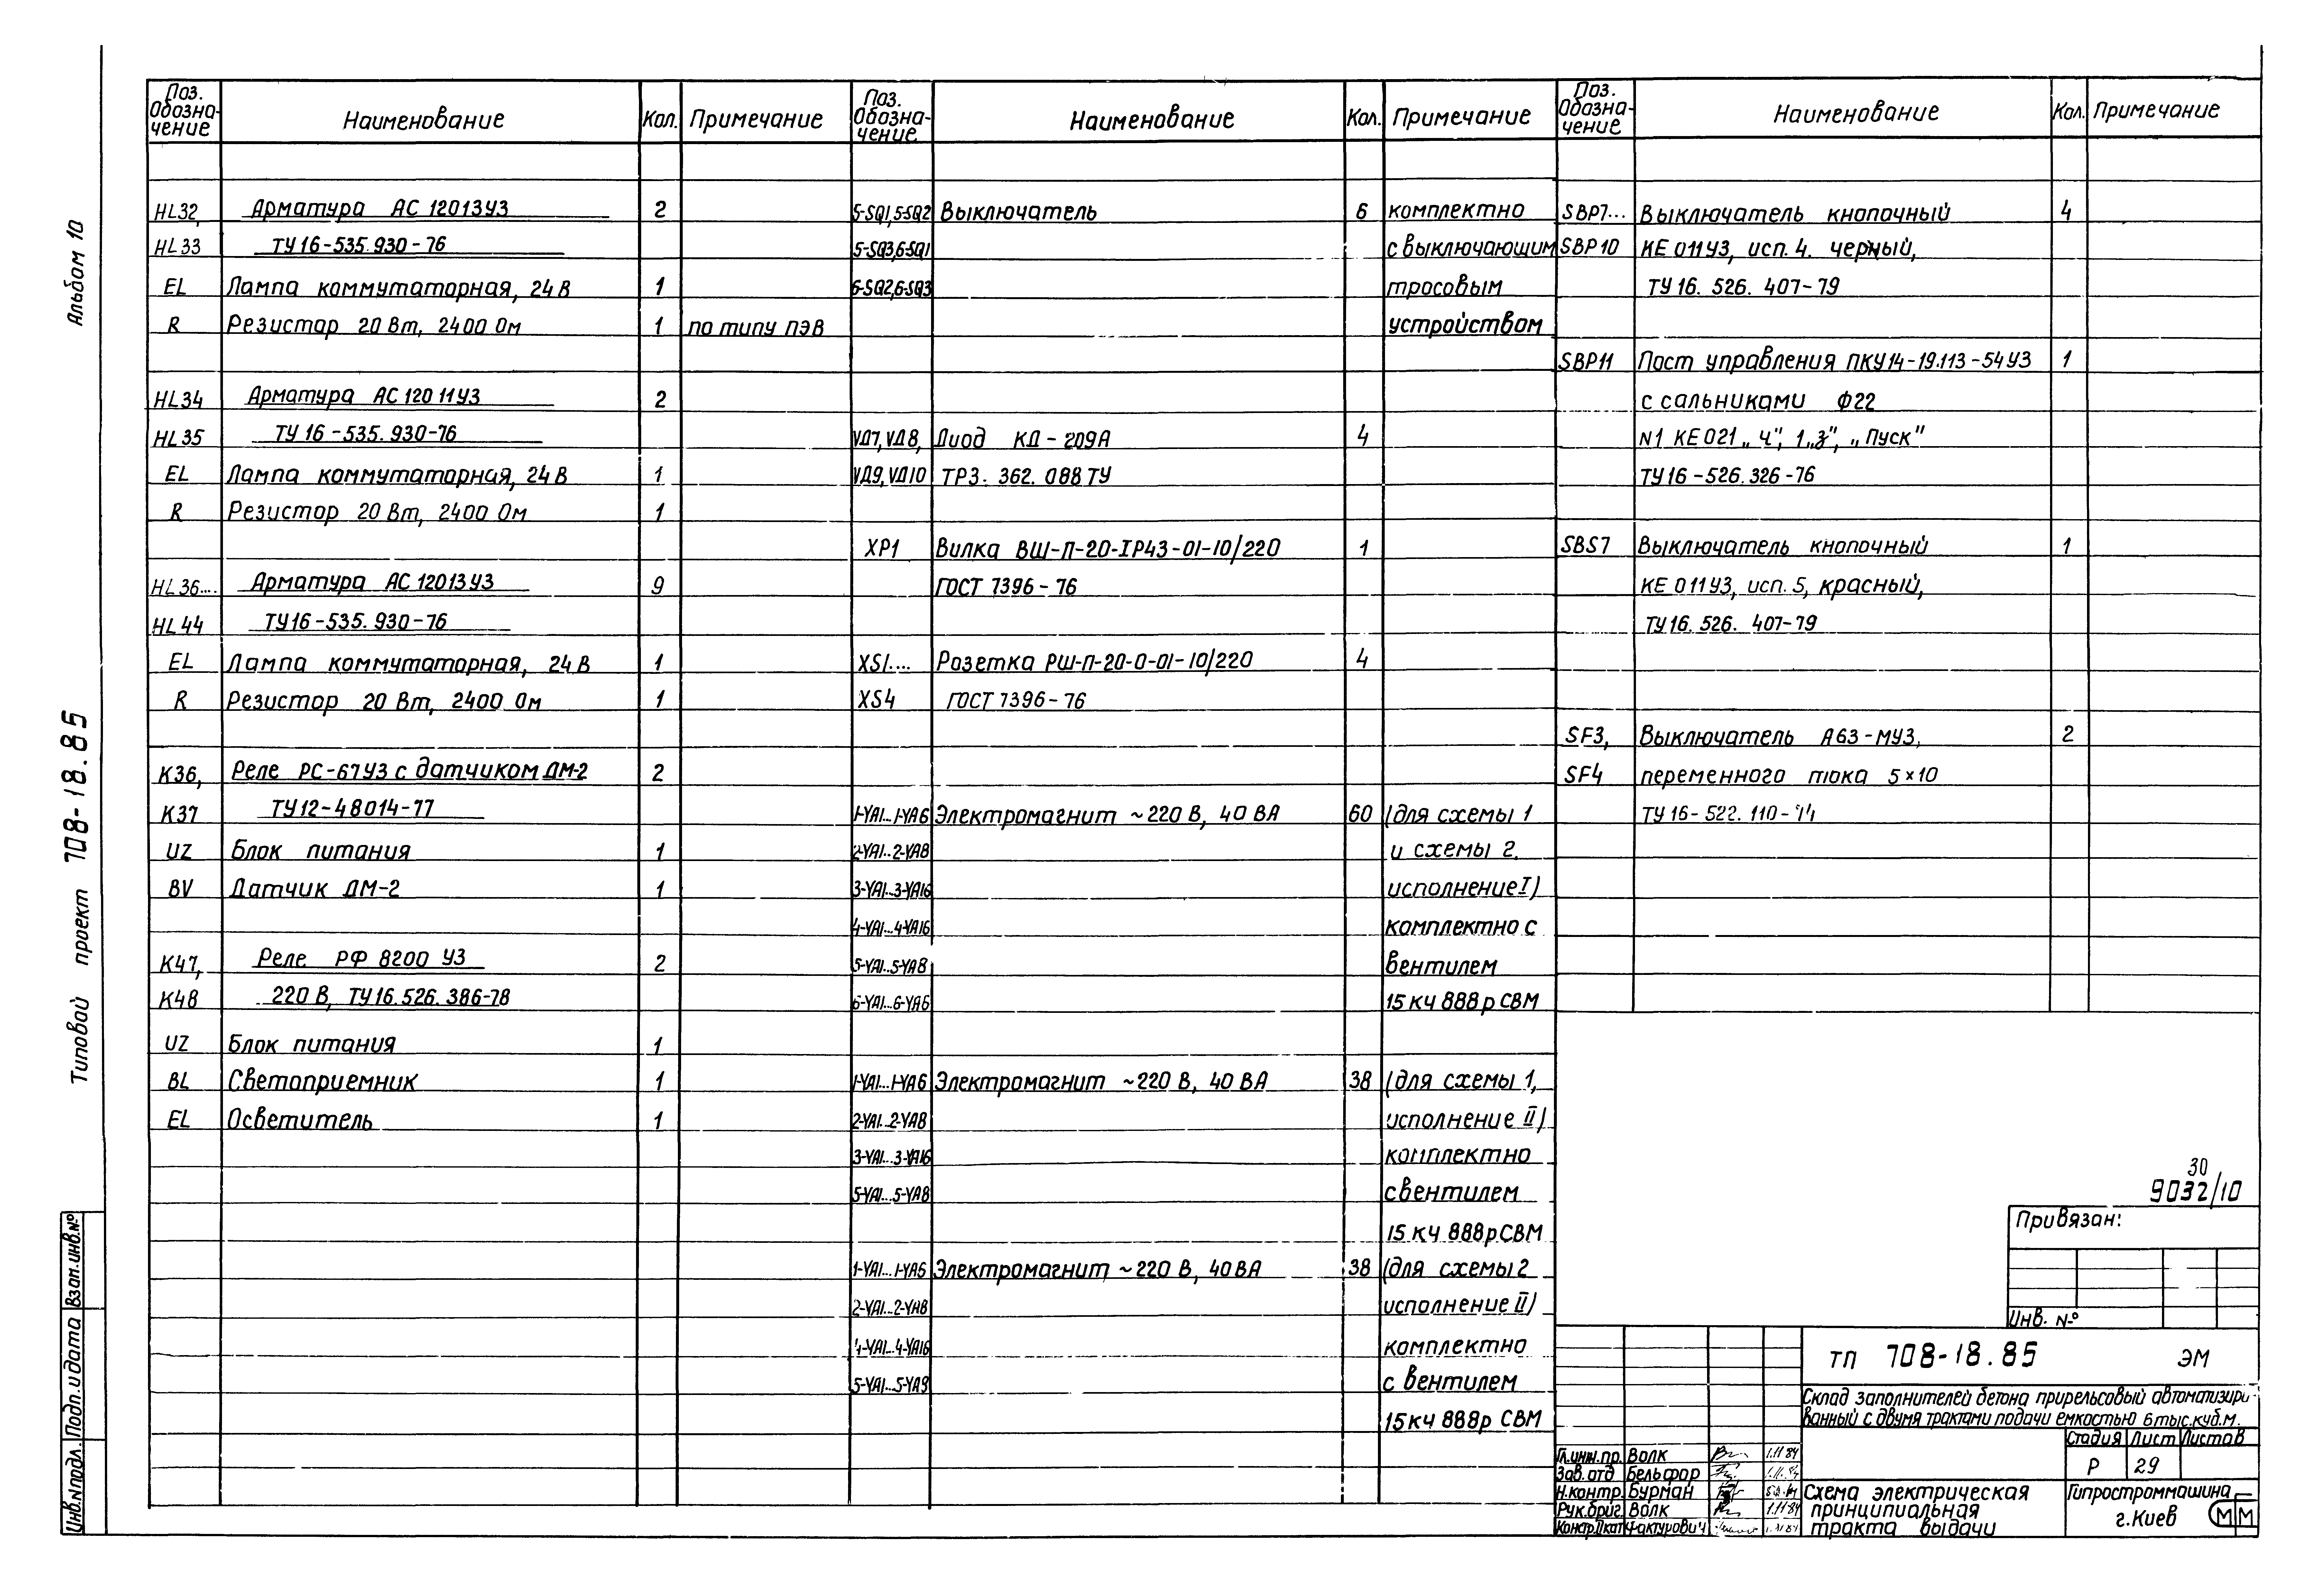 Альбом 10
Типовой проект 708-18.85
Инв.№подл. Подп.и дата Взам.инв.№
Поз. Обозна-чение Наименование Кол. Примечание
HL32, Арматура АС 12013У3 2
HL33 ТУ16-535.930-76
EL Лампа коммутаторная, 24В 1
R Резистор 20 Вт, 2400 Ом 1 по типу ПЭВ
HL34 Арматура АС 12011У3 2
HL35 ТУ 16-535.930-76
EL Лампа коммутаторная, 24В 1
R Резистор 20 Вт, 2400 Ом 1
HL36... Арматура АС 12013У3 9
HL44 ТУ16-535.930-76
EL Лампа коммутаторная, 24В 1
R Резистор 20 Вт, 2400 Ом 1
K36, Реле РС-67У3 с датчиком ДМ-2 2
K37 ТУ12-48014-77
UZ Блок питания 1
BV Датчик ДМ-2 1
K47, Реле РФ 8200 У3 2
K48 220 В, ТУ16.526.386-78
UZ Блок питания 1
BL Светоприемник 1
EL Осветитель 1
Поз. Обозна-чение Наименование Кол. Примечание
5-SQ1,5-SQ2 Выключатель 6 комплектно
5-SQ3,6-SQ1 с выключающим
6-SQ2,6-SQ3 тросовым
устройством
VД7, VД8, Диод КД-209А 4
VД9, VД10 ТР3.362.088ТУ
XP1 Вилка ВШ-П-20-IP43-01-10/220 1
ГОСТ 7396-76
XS1.... Розетка РШ-П-20-0-01-10/220 4
XS4 ГОСТ 7396-76
1-YA1...1-YA6 Электромагнит ~220 В, 40 ВА 60 (для схемы 1
2-YA1...2-YA8 и схемы 2,
3-YA1...3-YA16 исполнение I)
4-YA1...4-YA16 комплектно с
5-YA1...5-YA8 вентилем
6-YA1...6-YA6 15 кч 888 р СВМ
1-YA1...1-YA6 Электромагнит ~220 В, 40 ВА 38 (для схемы 1,
2-YA1...2-YA8 исполнение II)
3-YA1...3-YA16 комплектно
5-YA1...5-YA8 свентилем
15 кч 888р СВМ
1-YA1...1-YA6 Электромагнит ~220 В, 40ВА 38 (для схемы 2
2-YA1...2-YA8 исполнение II)
4-YA1...4-YA16 комплектно
5-YA1...5-YA8 с вентилем
15 кч 888р СВМ
Поз. Обозна-чение Наименование Кол. Примечание
SBP7... Выключатель кнопочный 4
SBP10 КЕ 011У3, исп. 4. черный,
ТУ 16. 526. 407-79
SBP11 Пост управления ПКУ14-19.113-54У3 1
с сальниками Ф22
N1 КЕ 021 „Ч", 1„З", „Пуск"
ТУ16-526.326-76
SBS7 Выключатель кнопочный 1
КЕ 011У3, исп. 5, красный,
ТУ16. 526. 407-79
SF3, Выключатель А63-МУ3, 2
SF4 переменного тока 5×10
ТУ16-522.110-74
30
9032/10
Привязан:
Инв. №
ТП 708-18.85 ЭМ
Склад заполнителей бетона прирельсовый автоматизиро-
ванный с двумя трактами подачи емкостью 6тыс.куб.м.
Стадия Лист Листов
Р 29
Гл.инж.пр. Волк 1.11 84
Зав.отд Бельфор 1.11.84
Н.контр. Бурман
Рук.бриг. Волк 1.11 84
Констр.Iкат Фактурович
Схема электрическая
принципиальная
тракта выдачи
Гипростроммашина
г.Киев
ММ